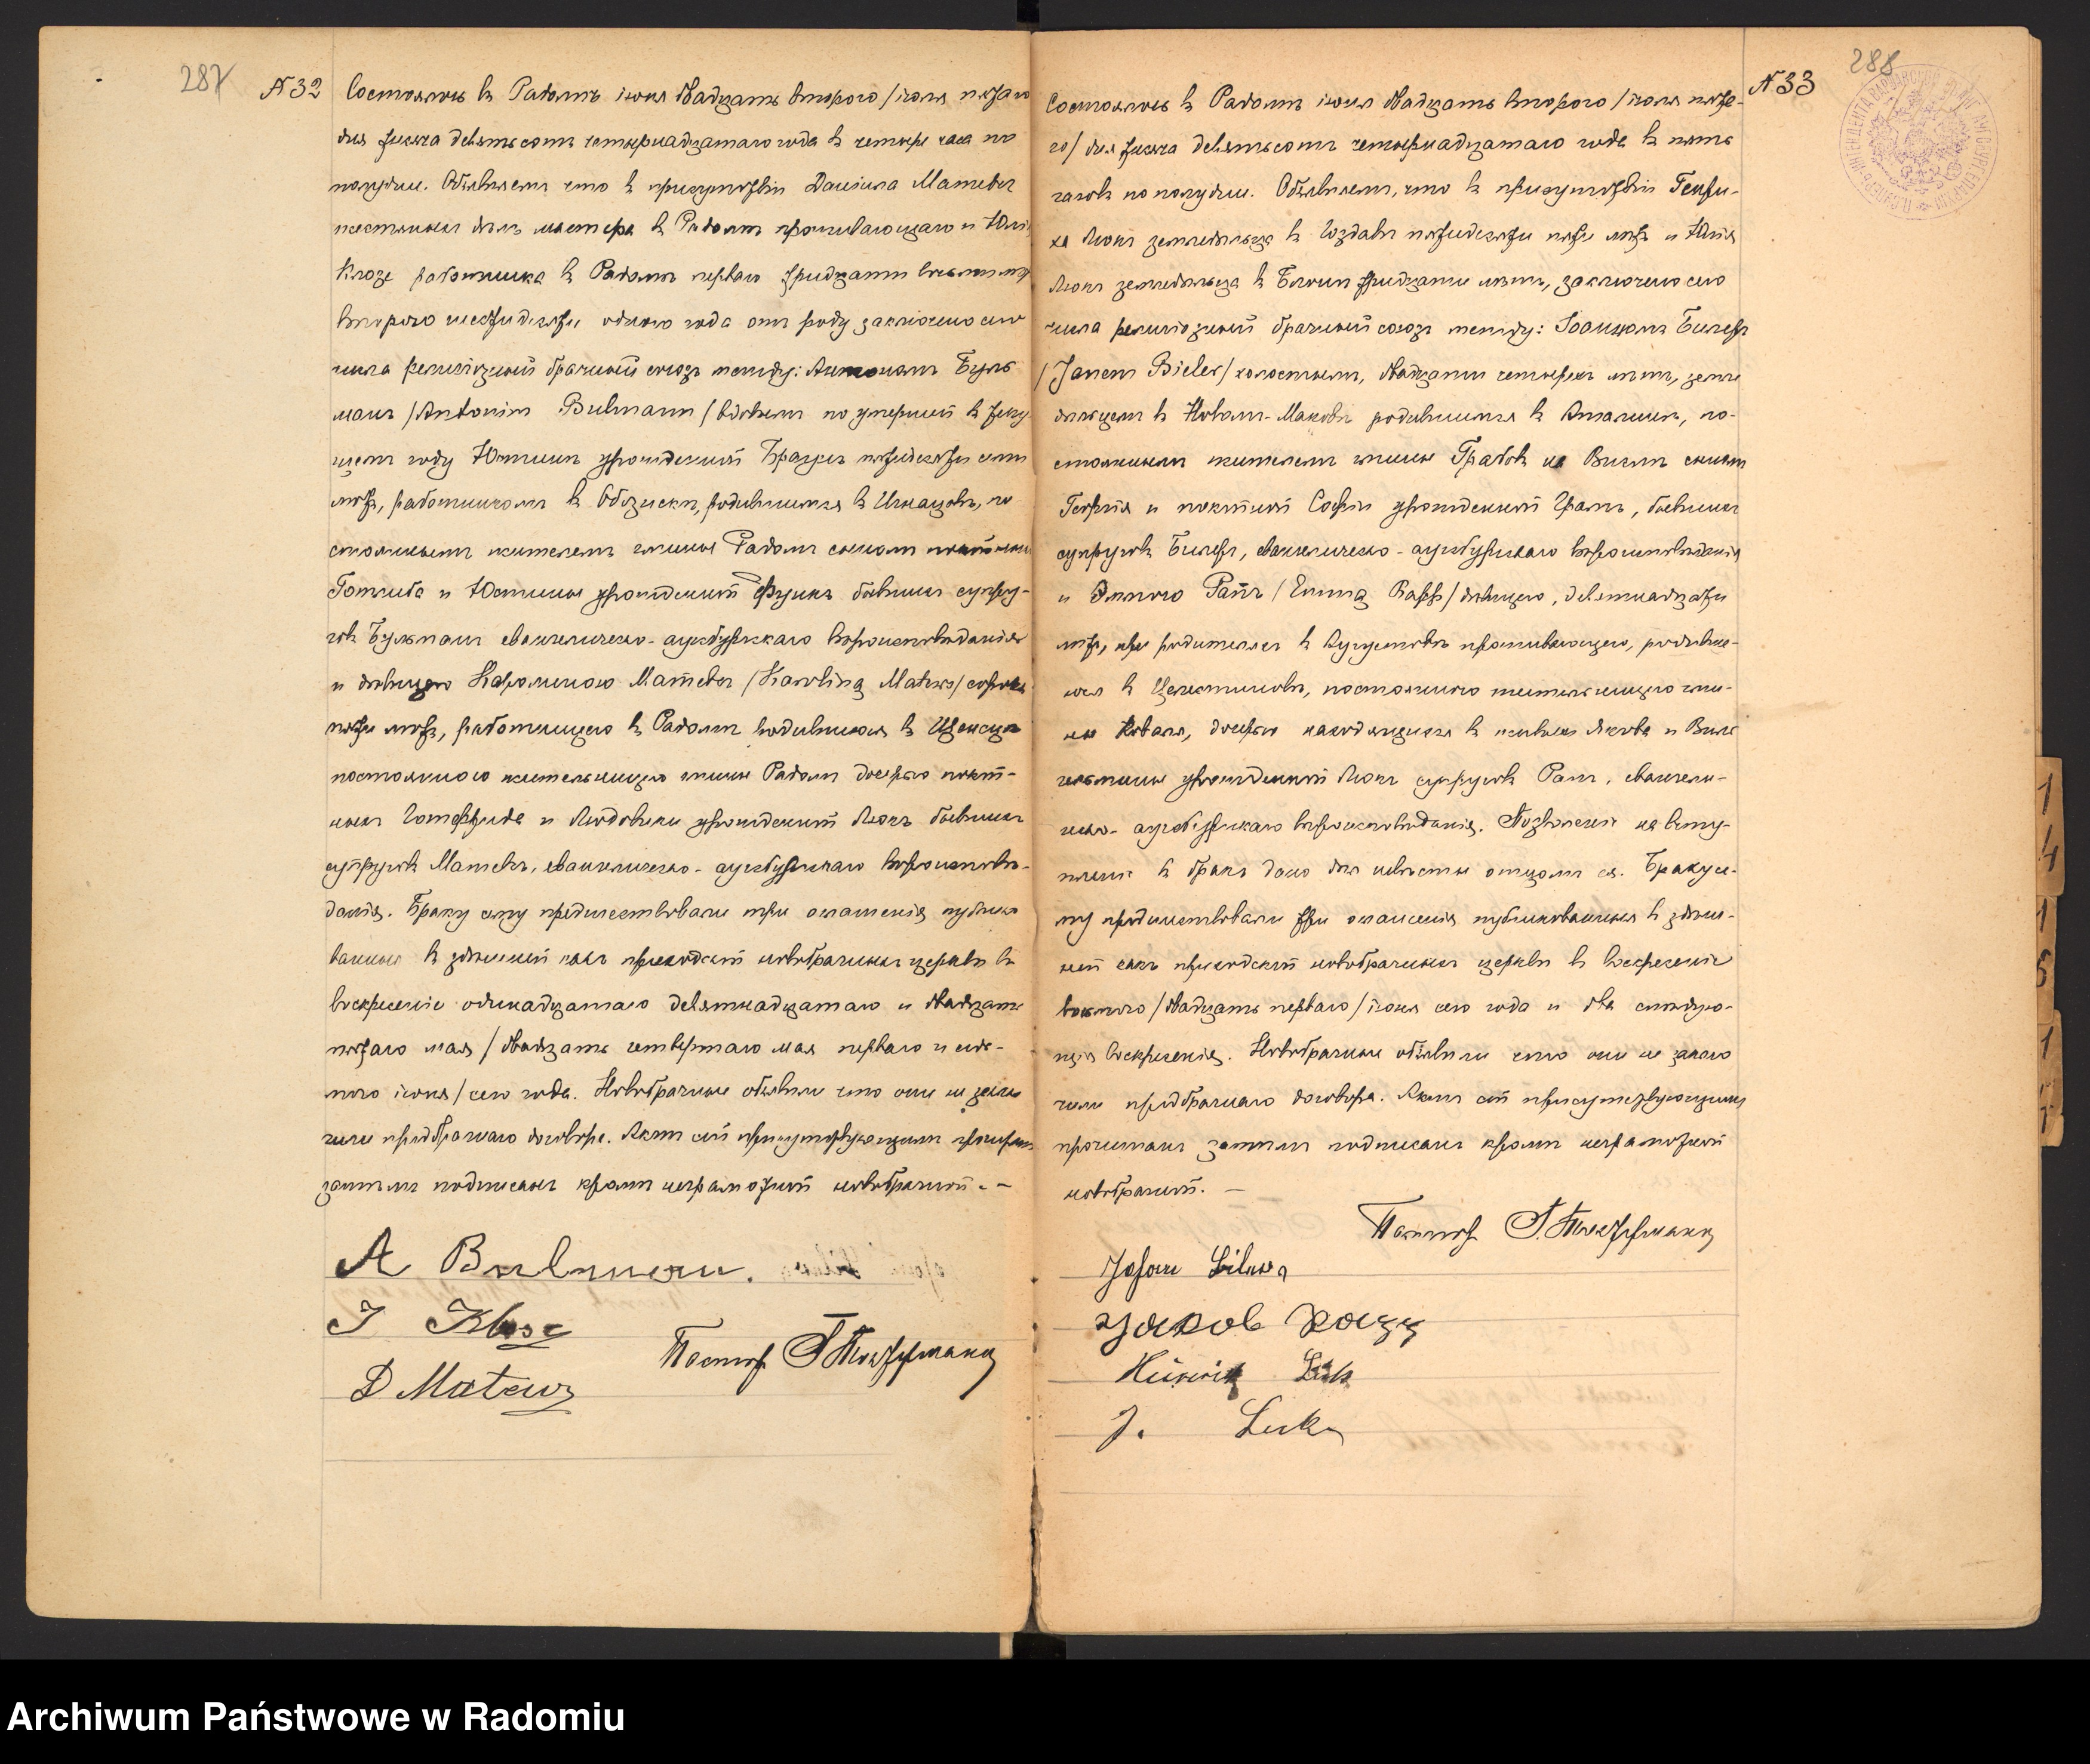 287
N 32
Состоялось въ Радомѣ іюня двадцать второго /іюля пятаго
дня тысяча девятьсотъ четырнадцатаго года въ четыре часа по
полудни. Объявляемъ что въ присутствіи Даніила Матевсъ
жестяныхъ дѣлъ мастера въ Радомѣ проживающаго и Юлі
Клозе работника въ Радомѣ перваго тридцати восьми лѣтъ
второго шестидесяти одного года отъ роду заключено сего
числа религіозный брачный союзъ между: Антономъ Буль
манъ /Antonim Bulmann/ вдовцемъ по умершей въ теку
щемъ году Юстинѣ урожденной пятидесяти семи
лѣтъ, работникомъ въ родившимся въ Игнацовѣ, по
стояннымъ жителемъ гмины Радомъ сыномъ покойныхъ
Готлиба и Юстины урожденной Функъ бывшихъ супру-
говъ Бульманъ евангелическо-аугсбургскаго вѣроисповѣданія
и дѣвицею Каролиною Матевсъ /Karoliną Matews/ сорока
пяти лѣтъ, работницею въ Радомѣ родившеюся въ
постоянною жительницею гмины Радомъ дочерью покой-
ныхъ Готфрида и Людовики урожденной Люкъ бывшихъ
супруговъ Матевсъ, евангелическо-аугсбургскаго вѣроисповѣ-
данія. Браку сему предшествовали три оглашенія публико
ванныя въ здѣшней какъ приходской новобрачныхъ церкви въ
воскресеніе одинадцатаго девятнадцатаго и двадцать
пятаго мая /двадцать четвертаго мая перваго и седь-
мого іюня/ сего года. Новобрачные объявили что они не заклю
чили предбрачнаго договора. Актъ сей присутствующимъ прочитанъ
затѣмъ подписанъ кромѣ неграмотной новобрачной. –
A Bulmann.
J Klose
D Matews
Пасторъ
288
N 33
Состоялось въ Радомѣ іюня двадцать второго /іюля пята-
го/ дня тысяча девятьсотъ четырнадцатаго года въ пять
часовъ по полудни. Объявляемъ, что въ присутствіи Генри-
ха Люкъ земледѣльца въ Гоздавѣ пятидесяти пяти лѣтъ и Юлія
Люкъ земледѣльца въ тридцати лѣтъ, заключено сего
числа религіозный брачный союзъ между: Іоанномъ Билеръ
/Janem Bieler/ холостымъ, двадцати четырехъ лѣтъ, земле
дѣльцемъ въ Новомъ-Маковѣ родившимся въ по-
стояннымъ жителемъ гмины Грабовъ на Вислѣ сыномъ
Георгія и покойной Софіи урожденной Грамъ, бывшихъ
супруговъ Билеръ, евангелическо-аугсбургскаго вѣроисповѣданія
и Эммою Рапъ /Emmą Rapp/ дѣвицею, девятнадцати
лѣтъ, при родителяхъ въ Аугустовѣ проживающею, родивше-
юся въ Целестиновѣ, постоянною жительницею гми-
ны Коваля, дочерью находящихся въ живыхъ Якова и Виль
гельмины урожденной Люкъ супруговъ Рапъ, евангели-
ческо-аугсбургскаго вѣроисповѣданія. Позволеніе на всту-
пленіе въ бракъ дано для невѣсты отцомъ ея. Браку се-
му предшествовали три оглашенія публикованныя въ здѣш-
ней какъ приходской новобрачныхъ церкви въ воскресеніе
восьмого /двадцать перваго/ іюня сего года и два слѣдую-
щія воскресенія. Новобрачные объявили что они не заклю
чили предбрачнаго договора. Актъ сей присутствующимъ
прочитанъ затѣмъ подписанъ кромѣ неграмотной
новобрачной. –
Пасторъ
Johan
Якобъ
Heinrik Luk
J. Luk
Archiwum Państwowe w Radomiu